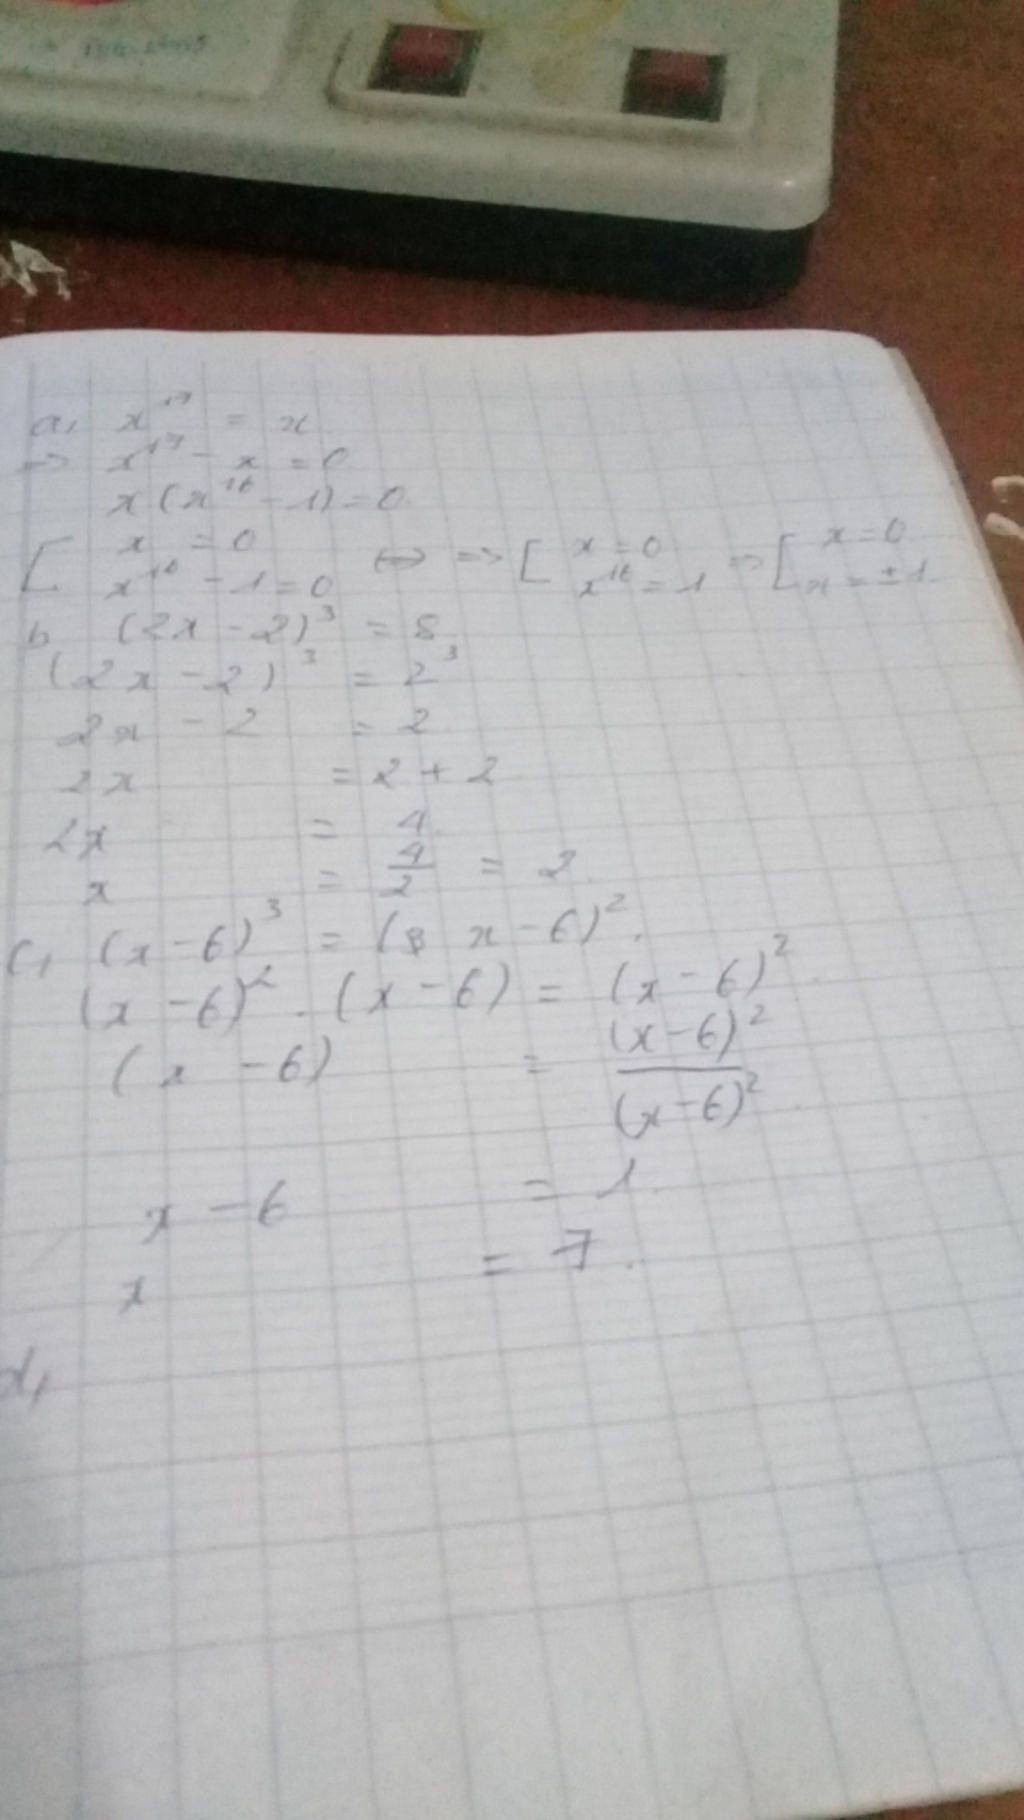 a, x¹⁷ = x
=> x¹⁷ - x = 0
x(x¹⁶ - 1) = 0
[ x = 0 <=> => [ x = 0 => [ x = 0
x¹⁶ - 1 = 0 x¹⁶ = 1 x = ± 1
b (2x - 2)³ = 8
(2x - 2)³ = 2³
2x - 2 = 2
2x = 2 + 2
2x = 4
x = 4/2 = 2.
c, (x - 6)³ = (x - 6)².
(x - 6)² . (x - 6) = (x - 6)²
(x - 6) = (x - 6)² / (x - 6)²
x - 6 = 1
x = 7.
d,